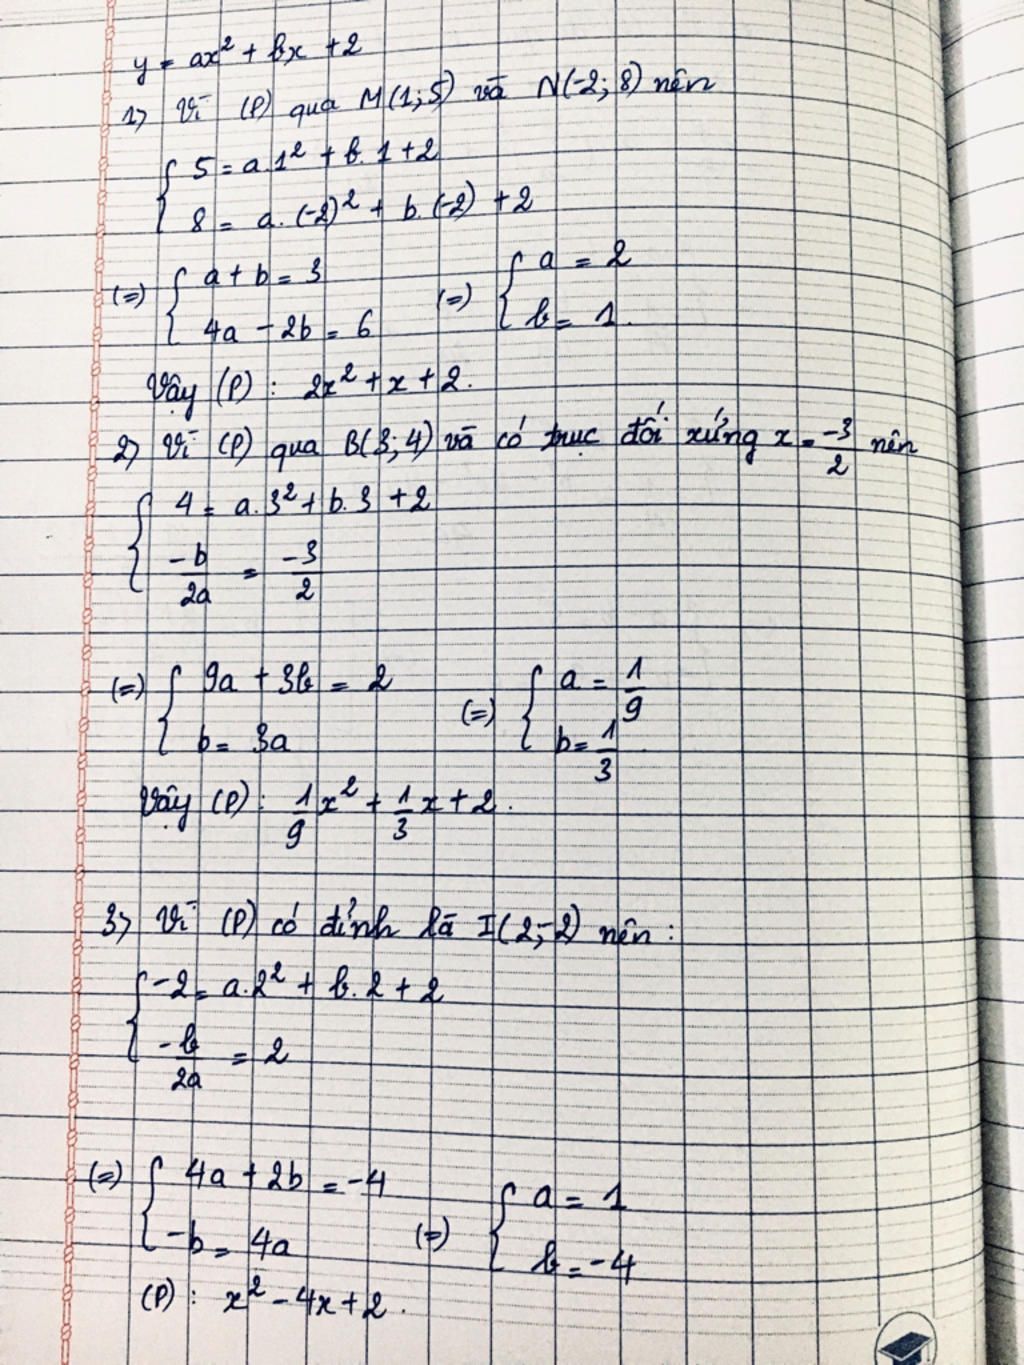 y = ax² + bx + 2
1) Vì (P) qua M(1; 5) và N(-2; 8) nên
{ 5 = a.1² + b.1 + 2
{ 8 = a.(-2)² + b.(-2) + 2
(=) { a + b = 3 (=) { a = 2
{ 4a - 2b = 6 { b = 1.
Vậy (P): 2x² + x + 2.
2) Vì (P) qua B(3; 4) và có trục đối xứng x = -3/2 nên
{ 4 = a.3² + b.3 + 2
{ -b/2a = -3/2
(=) { 9a + 3b = 2 (=) { a = 1/9
{ b = 3a { b = 1/3.
Vậy (P): 1/9x² + 1/3x + 2.
3) Vì (P) có đỉnh là I(2; -2) nên:
{ -2 = a.2² + b.2 + 2
{ -b/2a = 2
(=) { 4a + 2b = -4 (=) { a = 1
{ -b = 4a { b = -4
(P): x² - 4x + 2.